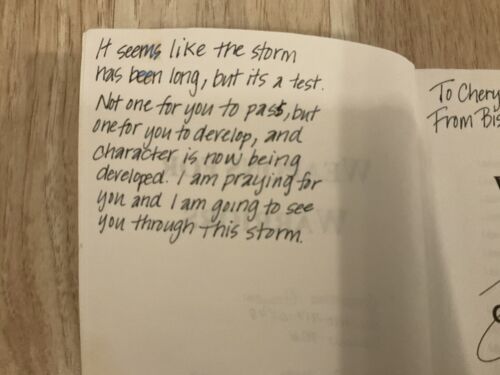 It seems like the storm
has been long, but its a test.
Not one for you to pass, but
one for you to develop, and
character is now being
developed. I am praying for
you and I am going to see
you through this storm.
To Chery
From Bis